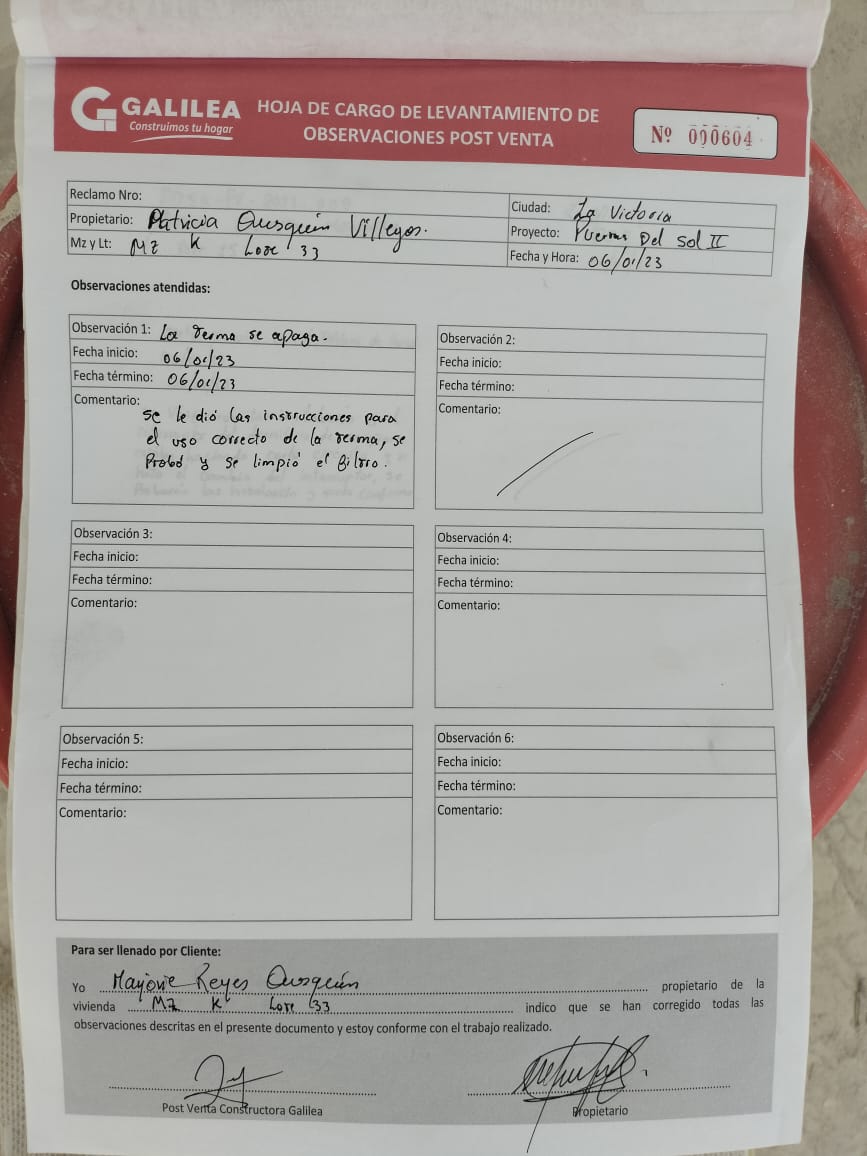 GALILEA
Construimos tu hogar
HOJA DE CARGO DE LEVANTAMIENTO DE
OBSERVACIONES POST VENTA
Nº 000604
Reclamo Nro:
Propietario: Patricia Ausquín Villegas.
Mz y Lt: Mz K Lote 33
Ciudad: La Victoria
Proyecto: Puertas Del Sol II
Fecha y Hora: 06/01/23
Observaciones atendidas:
Observación 1: La terma se apaga.
Fecha inicio: 06/01/23
Fecha término: 06/01/23
Comentario:
se le dió las instrucciones para
el uso correcto de la terma, se
Probó y se limpió el filtro.
Observación 2:
Fecha inicio:
Fecha término:
Comentario:
Observación 3:
Fecha inicio:
Fecha término:
Comentario:
Observación 4:
Fecha inicio:
Fecha término:
Comentario:
Observación 5:
Fecha inicio:
Fecha término:
Comentario:
Observación 6:
Fecha inicio:
Fecha término:
Comentario:
Para ser llenado por Cliente:
Yo Marjorie Reyes Ausquín propietario de la
vivienda Mz K Lote 33 indico que se han corregido todas las
observaciones descritas en el presente documento y estoy conforme con el trabajo realizado.
Post Venta Constructora Galilea
Propietario